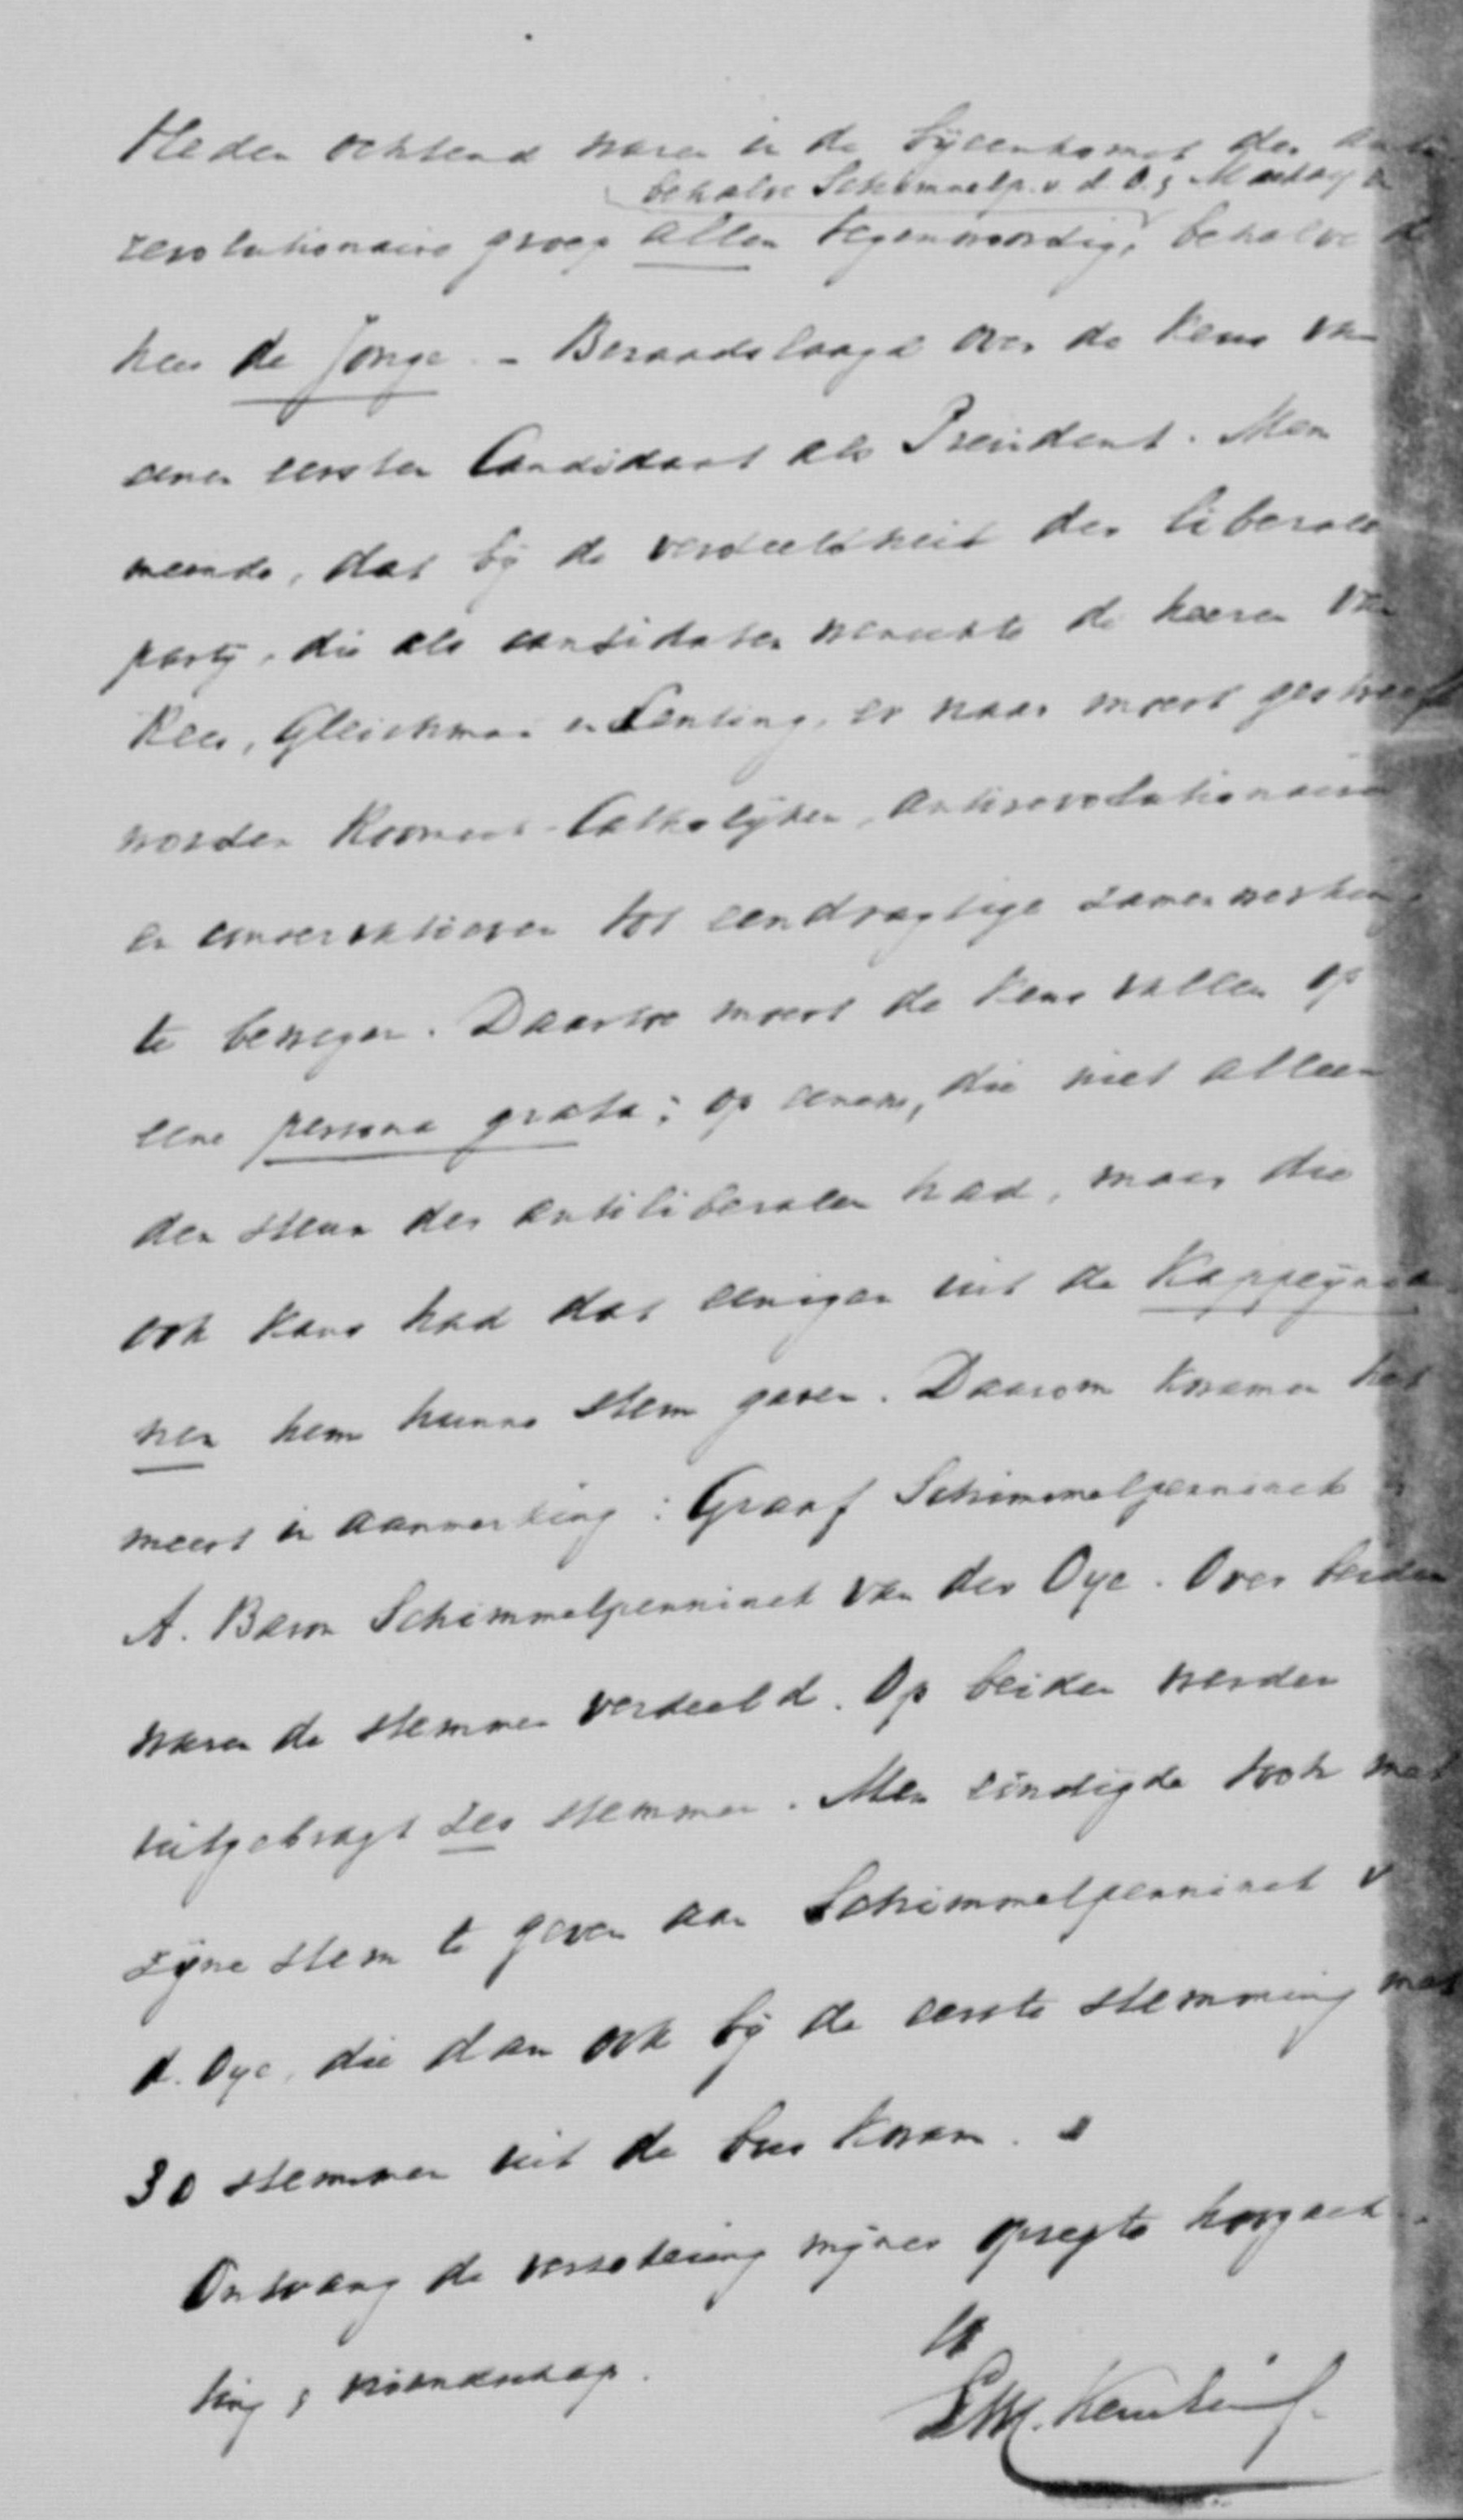 Heden ochtend waren in de bijeenkomst der anti
behalve Schimmelp. v. d. O. & Mackay
revolutionaire groep allen tegenwoordig, behalve de
heer de Jonge. – Beraadslaagd over de keus van
eenen eersten Candidaat als President. Men
meende, dat bij de verdeeldheid der liberale
partij, die als candidaten wenschte de heeren van
Rees, Gleichman en Lenting, er naar moest gestreefd
worden Roomsch-Catholijken, antirevolutionairen
en conservatieven tot eendragtige zamenwerking
te bewegen. Daartoe moest de keus vallen op
eene persona grata; op eenen, die niet alleen
den steun der antiliberalen had, maar die
ook kans had dat eenigen uit de Kappeynia
nen hem hunne stem gaven. Daarom kwamen het
meest in aanmerking: Graaf Schimmelpenninck en
A. Baron Schimmelpenninck van der Oye. Over beiden
waren de stemmen verdeeld. Op beiden werden
uitgebragt zes stemmen. Men eindigde toch met
zijne stem te geven aan Schimmelpenninck v
d. Oye, die dan ook bij de eerste stemming met
30 stemmen uit de bus kwam.
Ontvang de verzekering mijner opregte hoogach
ting & vriendschap.